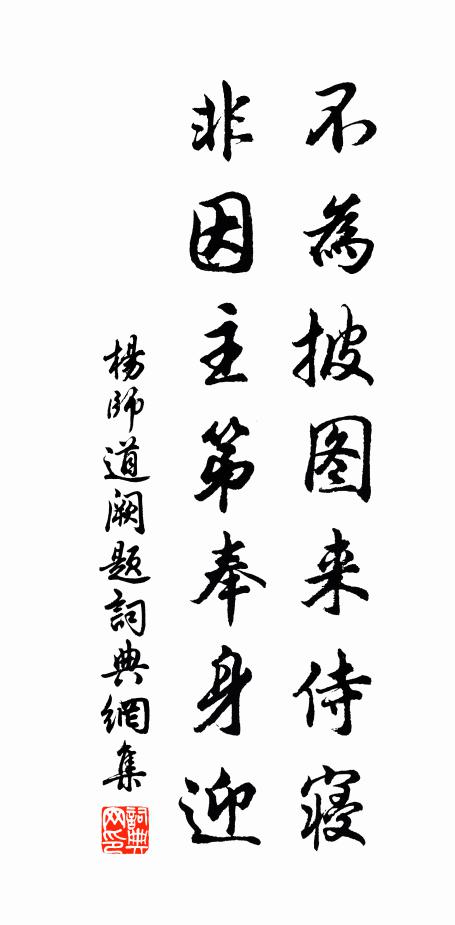 不為披图来侍寝
非因主第奉身迎
楊師道闕題詞典網集
詞典网印